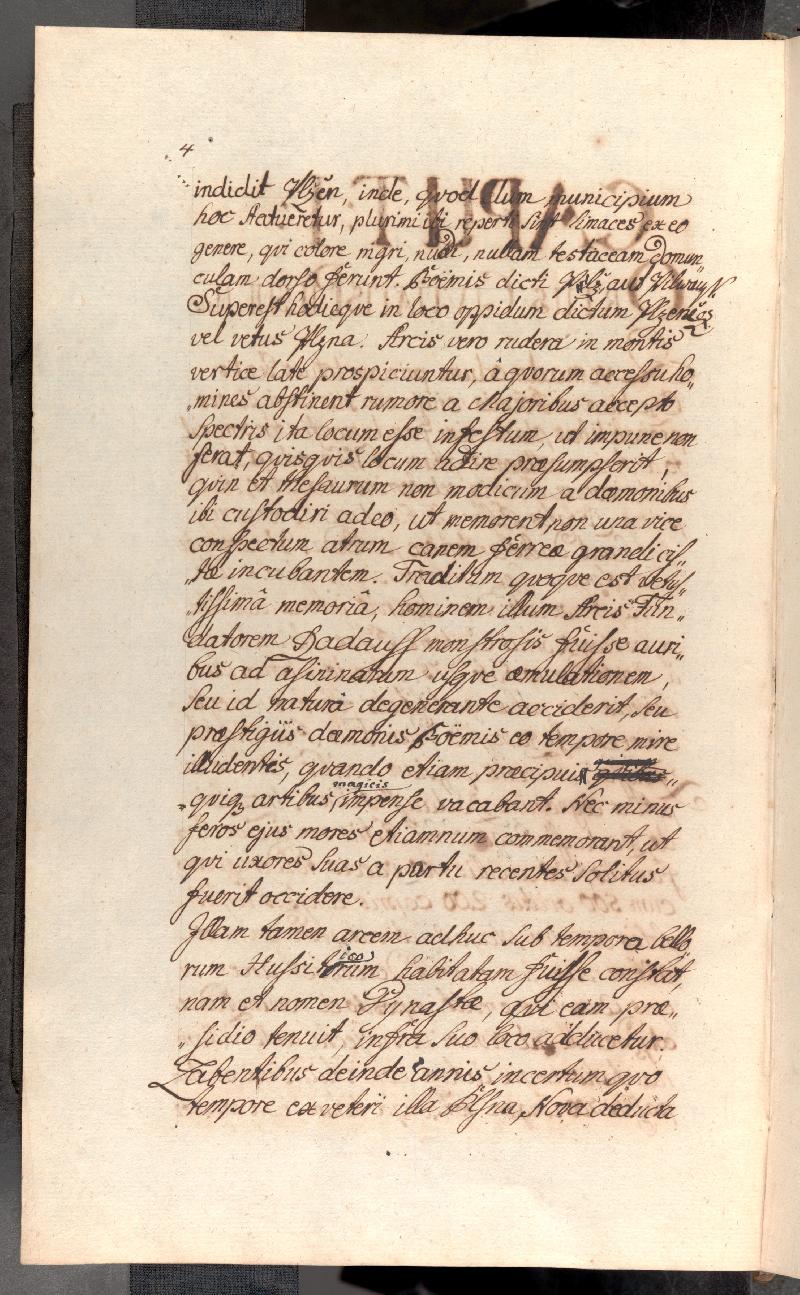 4
indidit Plzen, inde, qvod dum municipium
hoc strueretur, plurimi ibi reperti sint limaces ex eo
genere, qvi colore nigri, nudi, nullam testaceam domun„
culam dorso ferunt. Boëmis dicti Plz aut
Superest hodieqve in loco oppidum dictum Plzenecz
vel vetus Plzna. Arcis vero rudera in montis
vertice late prospiciuntur, â qvorum accessu ho„
„mines abstinent rumore a Majoribus accepto
Spectris ita locum esse infestum, ut impune non
ferat, qvisqvis locum adire præsumpserit,
qvin et thesaurum non modicum a dæmonibus
ibi custodiri adeo, ut memorent non una vice
conspectum atrum canem ferreæ grandi cis„
„tæ incubantem. Traditum qvoqve est vetus„
„tissimâ memoriâ, hominem illum Arcis Fun„
datorem Radauss monstrosis fuisse auri„
bus ad asininarum usqve æmulationem,
seu id naturâ degenerante acciderit, seu
præstigiis dæmonis, Boëmis eo tempore mire
illudentis, qvando etiam præcipui
qviq₃ artibus magicis impense vacabant. Nec minus
feros ejus mores etiamnum commemorant, ut
qvi uxores suas a partu recentes solitus
fuerit occidere.
Illam tamen arcem adhuc sub tempora bello
rum Hussiticorum habitatam fuisse constat,
nam et nomen Dynastæ, qvi eam præ„
„sidio tenuit, infra suo loco adducetur.
Labentibus deinde annis, incertum qvo
tempore ex veteri illa Plsna, Nova deducta